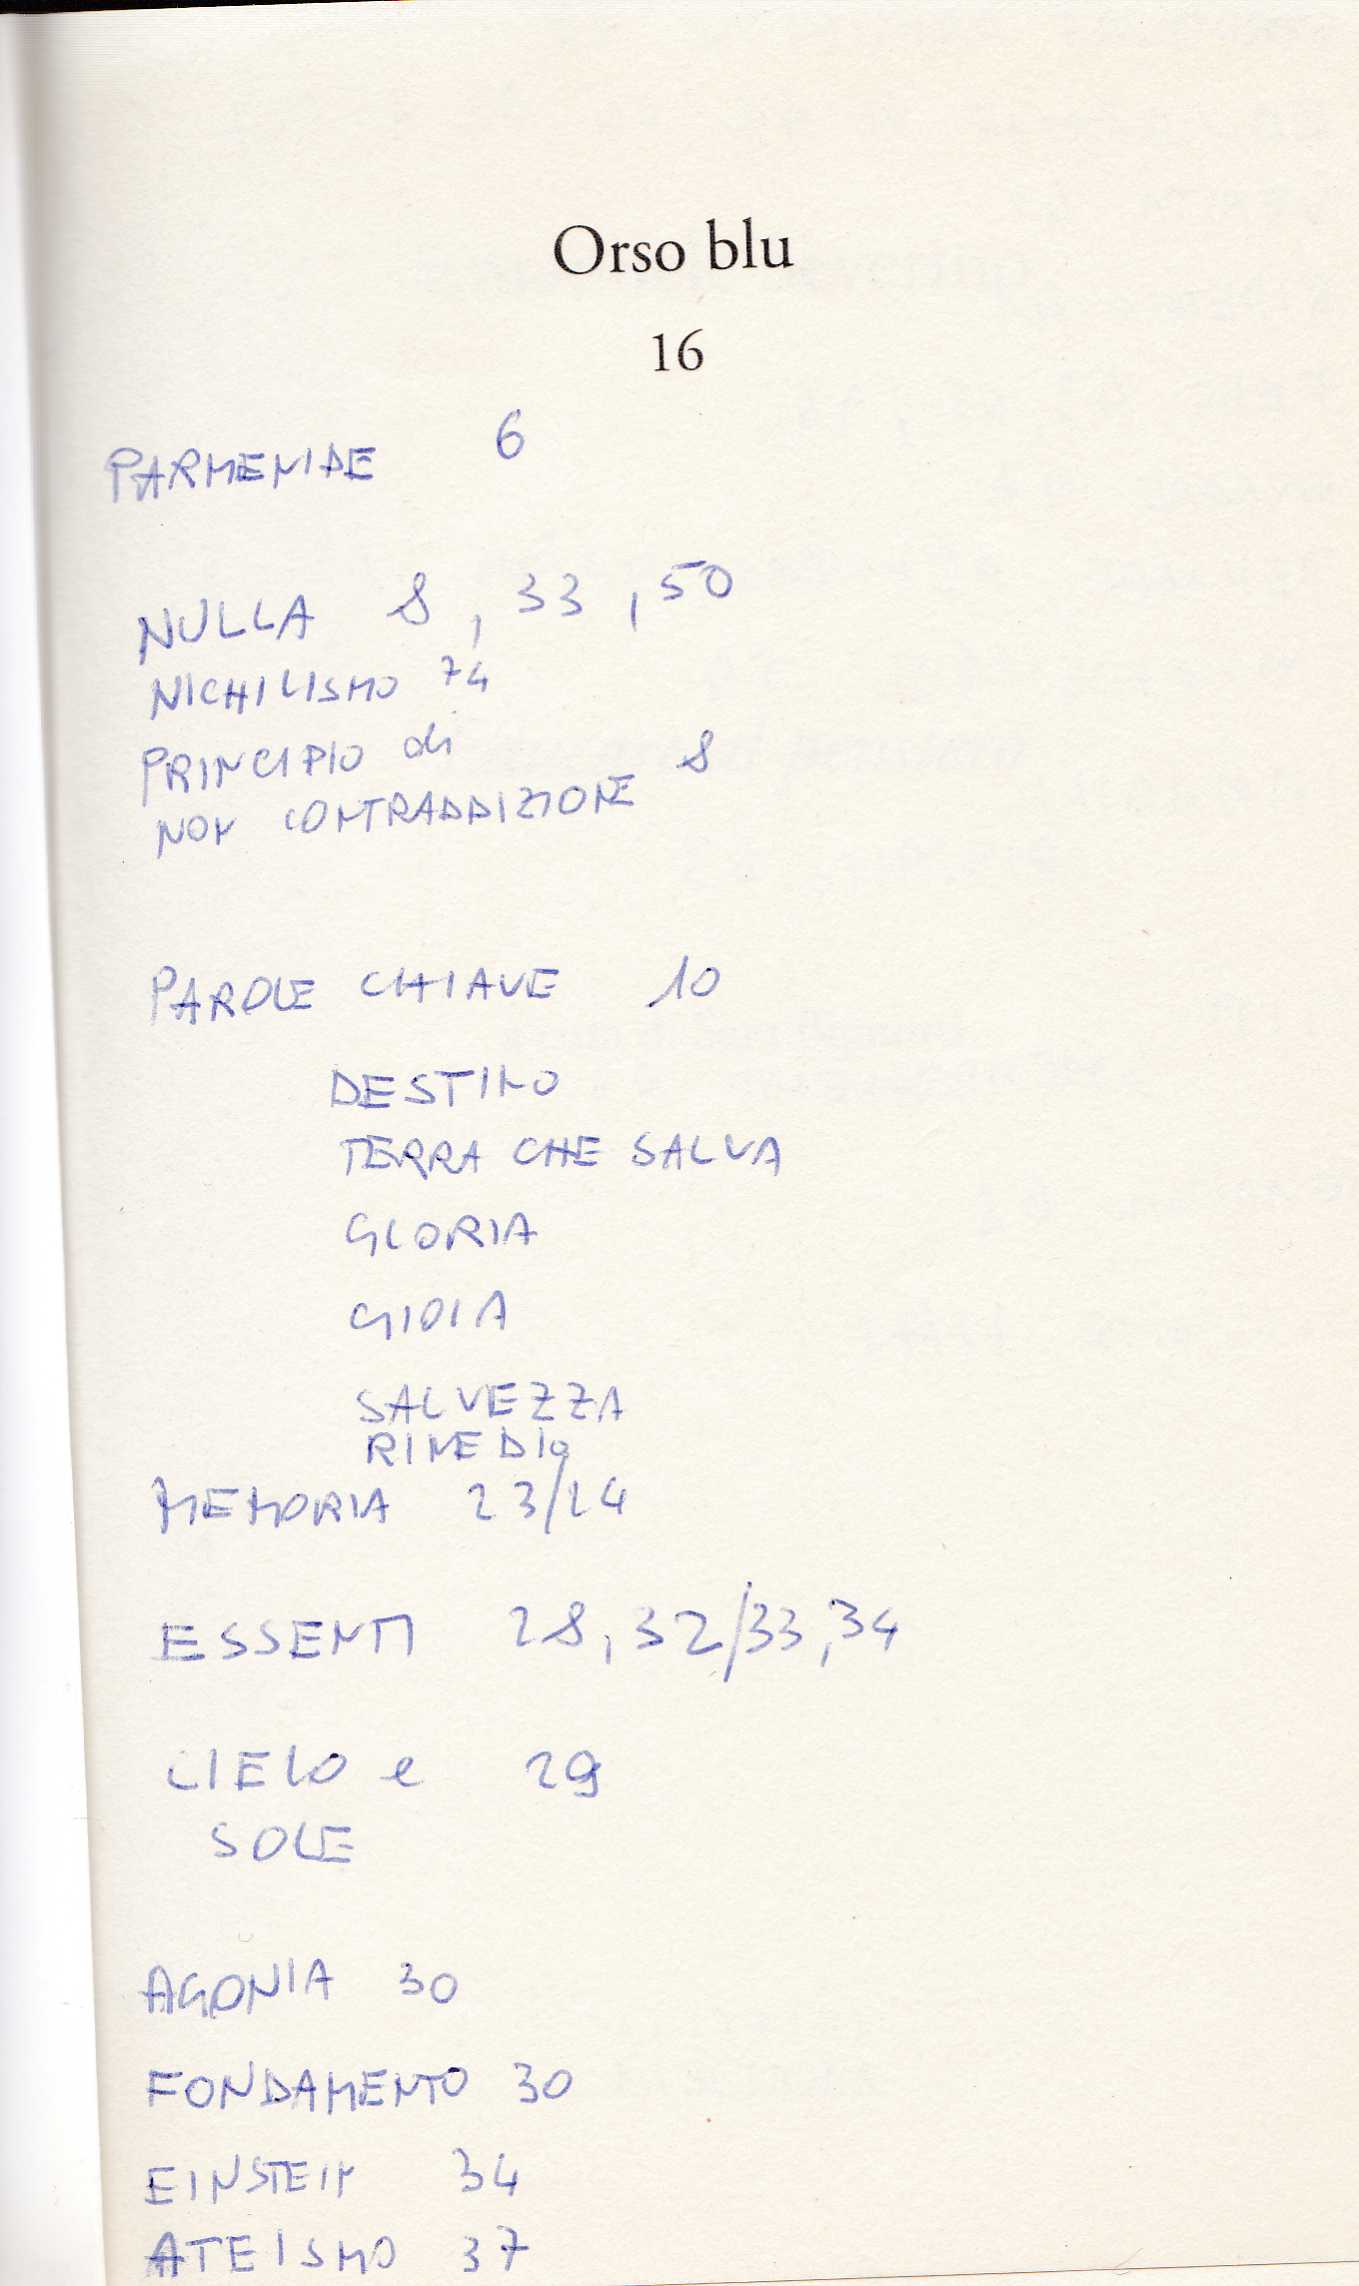 Orso blu
16
PARMENIDE 6
NULLA 8, 33, 50
NICHILISMO 74
PRINCIPIO di
NON CONTRADDIZIONE 8
PAROLE CHIAVE 10
DESTINO
TERRA CHE SALVA
GLORIA
GIOIA
SALVEZZA
RIMEDIO
MEMORIA 23/24
ESSENTI 28, 32/33, 34
CIELO e 29
SOLE
AGONIA 30
FONDAMENTO 30
EINSTEIN 34
ATEISMO 37